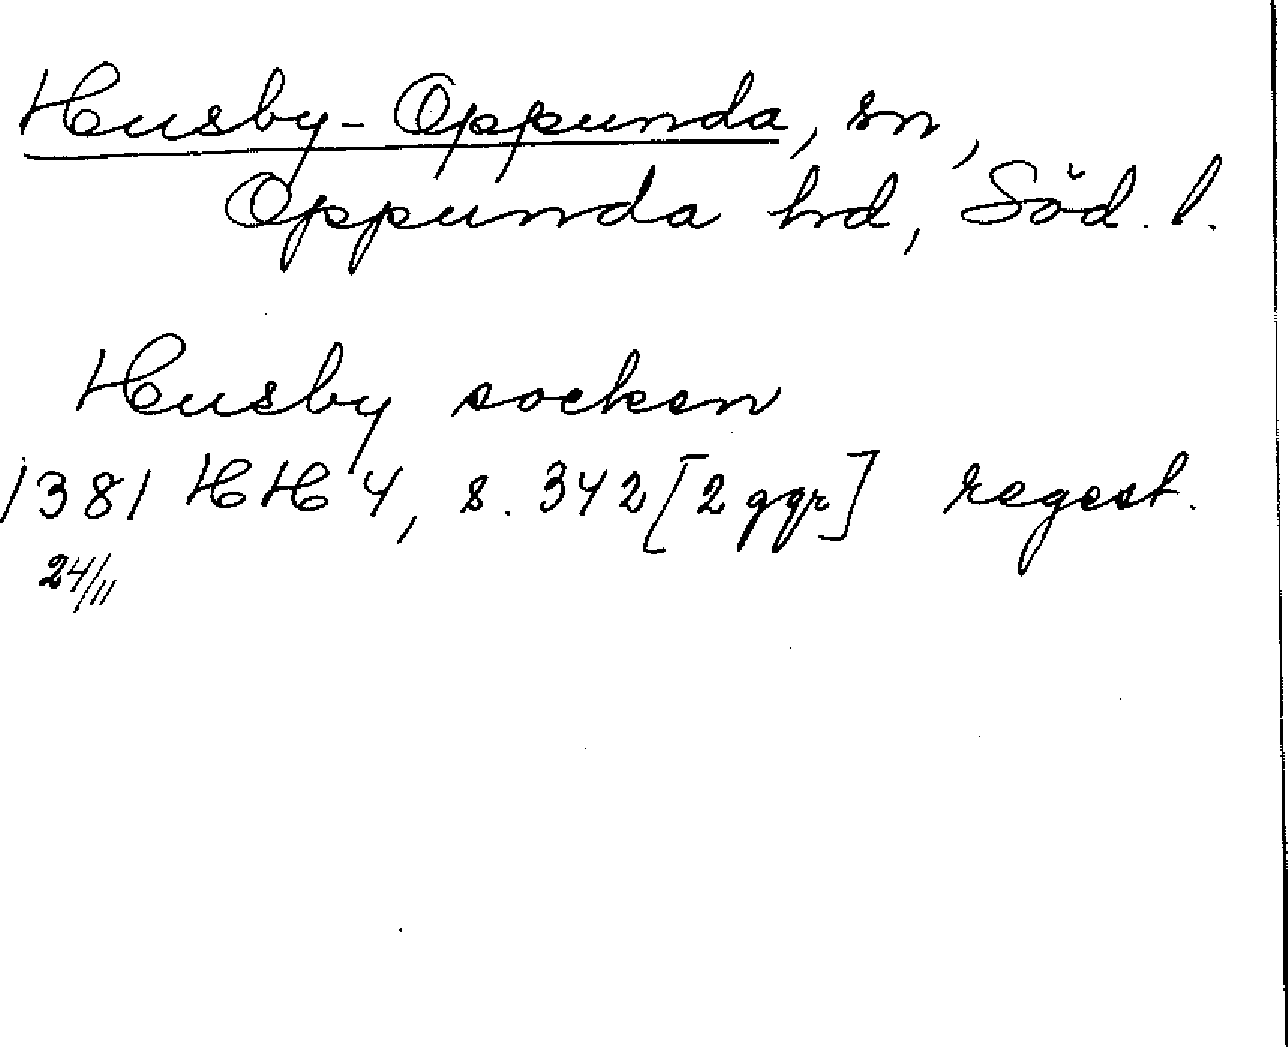 Husby-Oppunda, sn,
Oppunda hd, Söd. l.
Husby socken
1381 HH 4, s. 342 [2 ggr] regest.
24/11